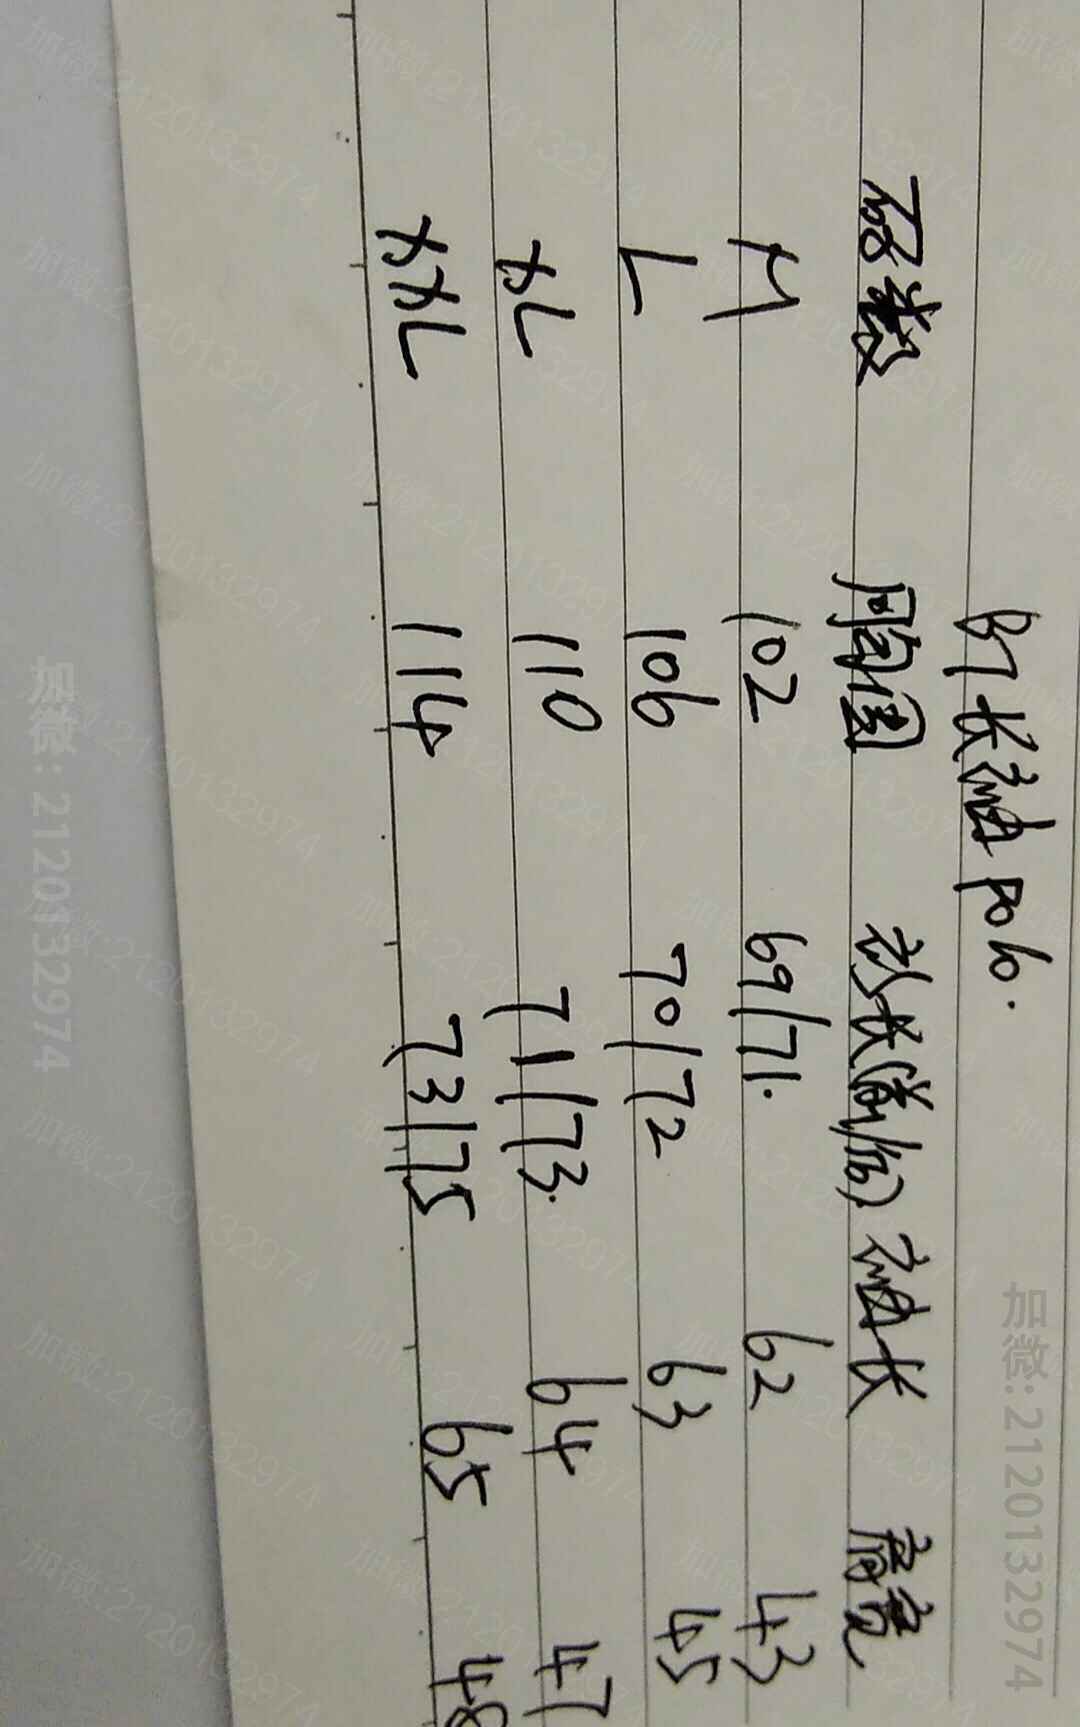 BT长袖polo.
码数 胸围 衣长(前/后) 袖长 肩宽
M 102 69/71. 62 43
L 106 70/72 63 45
XL 110 71/73. 64 47
XXL 114 73/75 65 48
加微:2120132974
加微:2120132974